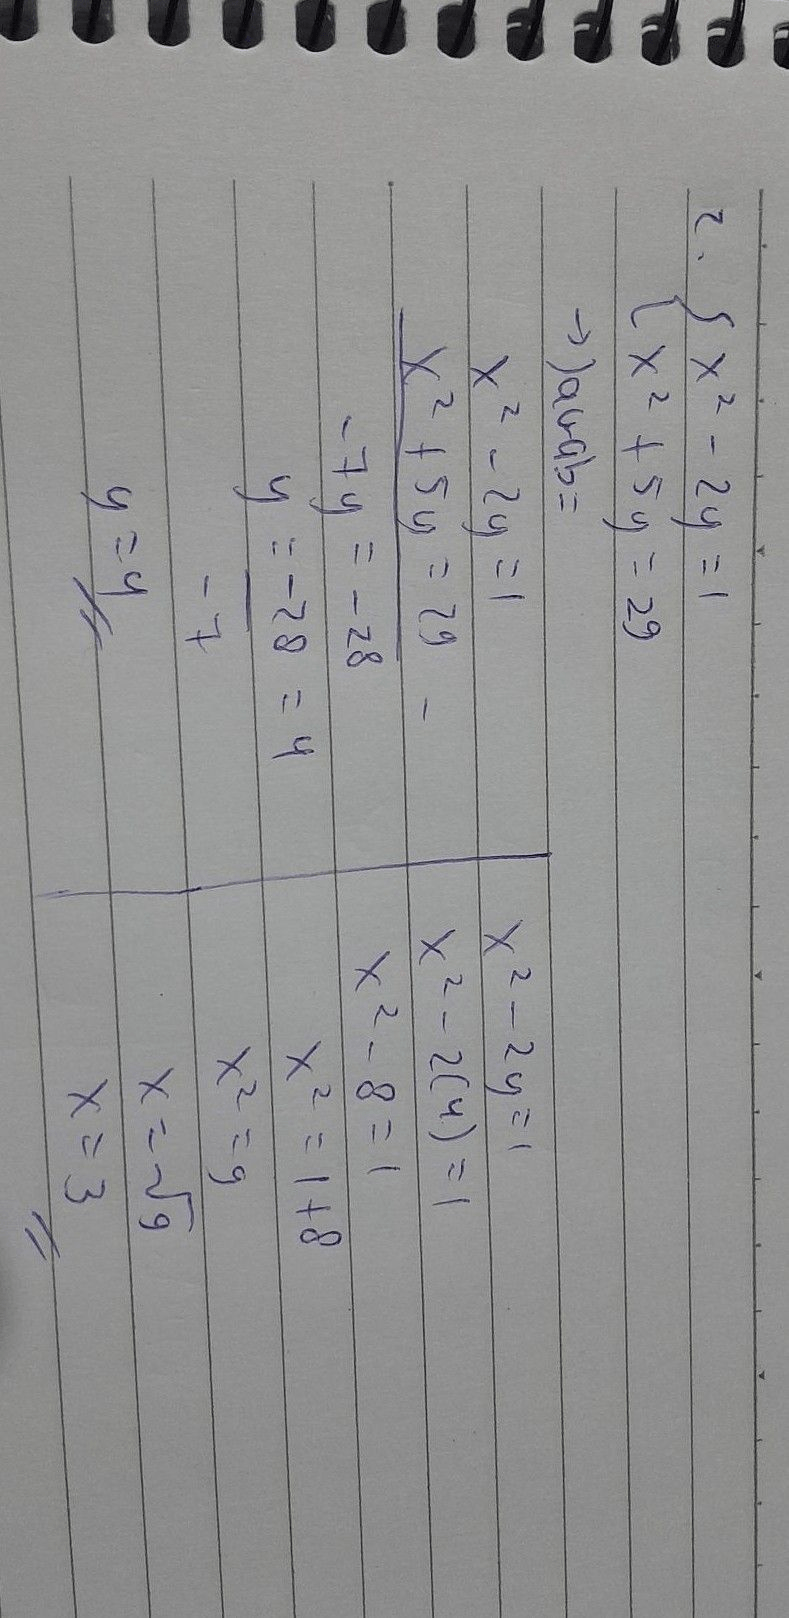 2. { x² - 2y = 1
{ x² + 5y = 29
→ Jawab =
x² - 2y = 1
x² + 5y = 29 -
-7y = -28
y = -28 = 4
-7
y = 4
x² - 2y = 1
x² - 2(4) = 1
x² - 8 = 1
x² = 1 + 8
x² = 9
x = √9
x = 3